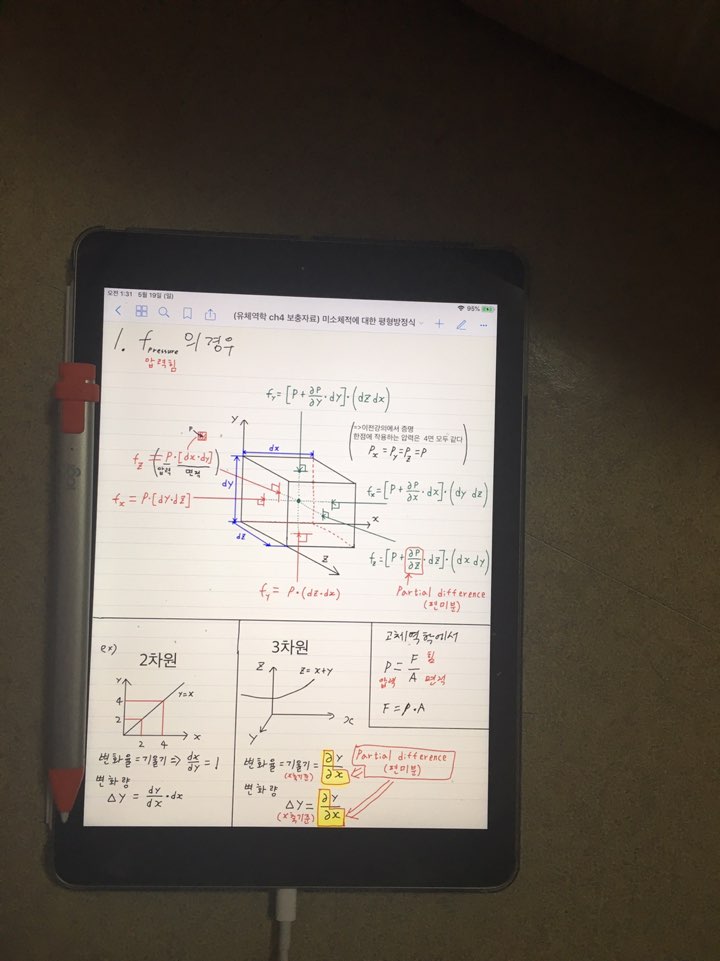 오전 1:31 5월 19일 (일)
95%
(유체역학 ch4 보충자료) 미소체적에 대한 평형방정식
1. f pressure 의 경우
압력힘
fy = [P + ∂P/∂Y · dY] · (dZ dx)
P
Y
dx
(=>이전강의에서 증명
한점에 작용하는 압력은 4면 모두 같다
Px = Py = Pz = P)
fz = P · [dx · dy]
(압력 면적)
dY
fx = [P + ∂P/∂x · dx] · (dy dz)
fx = P · [dY · dZ]
x
dZ
Z
fz = [P + ∂P/∂Z · dZ] · (dx dy)
fy = P · (dZ · dx)
Partial difference
(편미분)
ex)
2차원
Y
4
2
y=x
2 4 x
변화율 = 기울기 => dx/dy = 1
변화량
ΔY = dy/dx · dx
3차원
Z
Z = x+y
x
Y
변화율 = 기울기 = ∂Y/∂x
(x축기준)
변화량
ΔY = ∂Y/∂x
(x축기준)
Partial difference
(편미분)
고체역학에서
P = F/A
힘
압력 면적
F = P · A